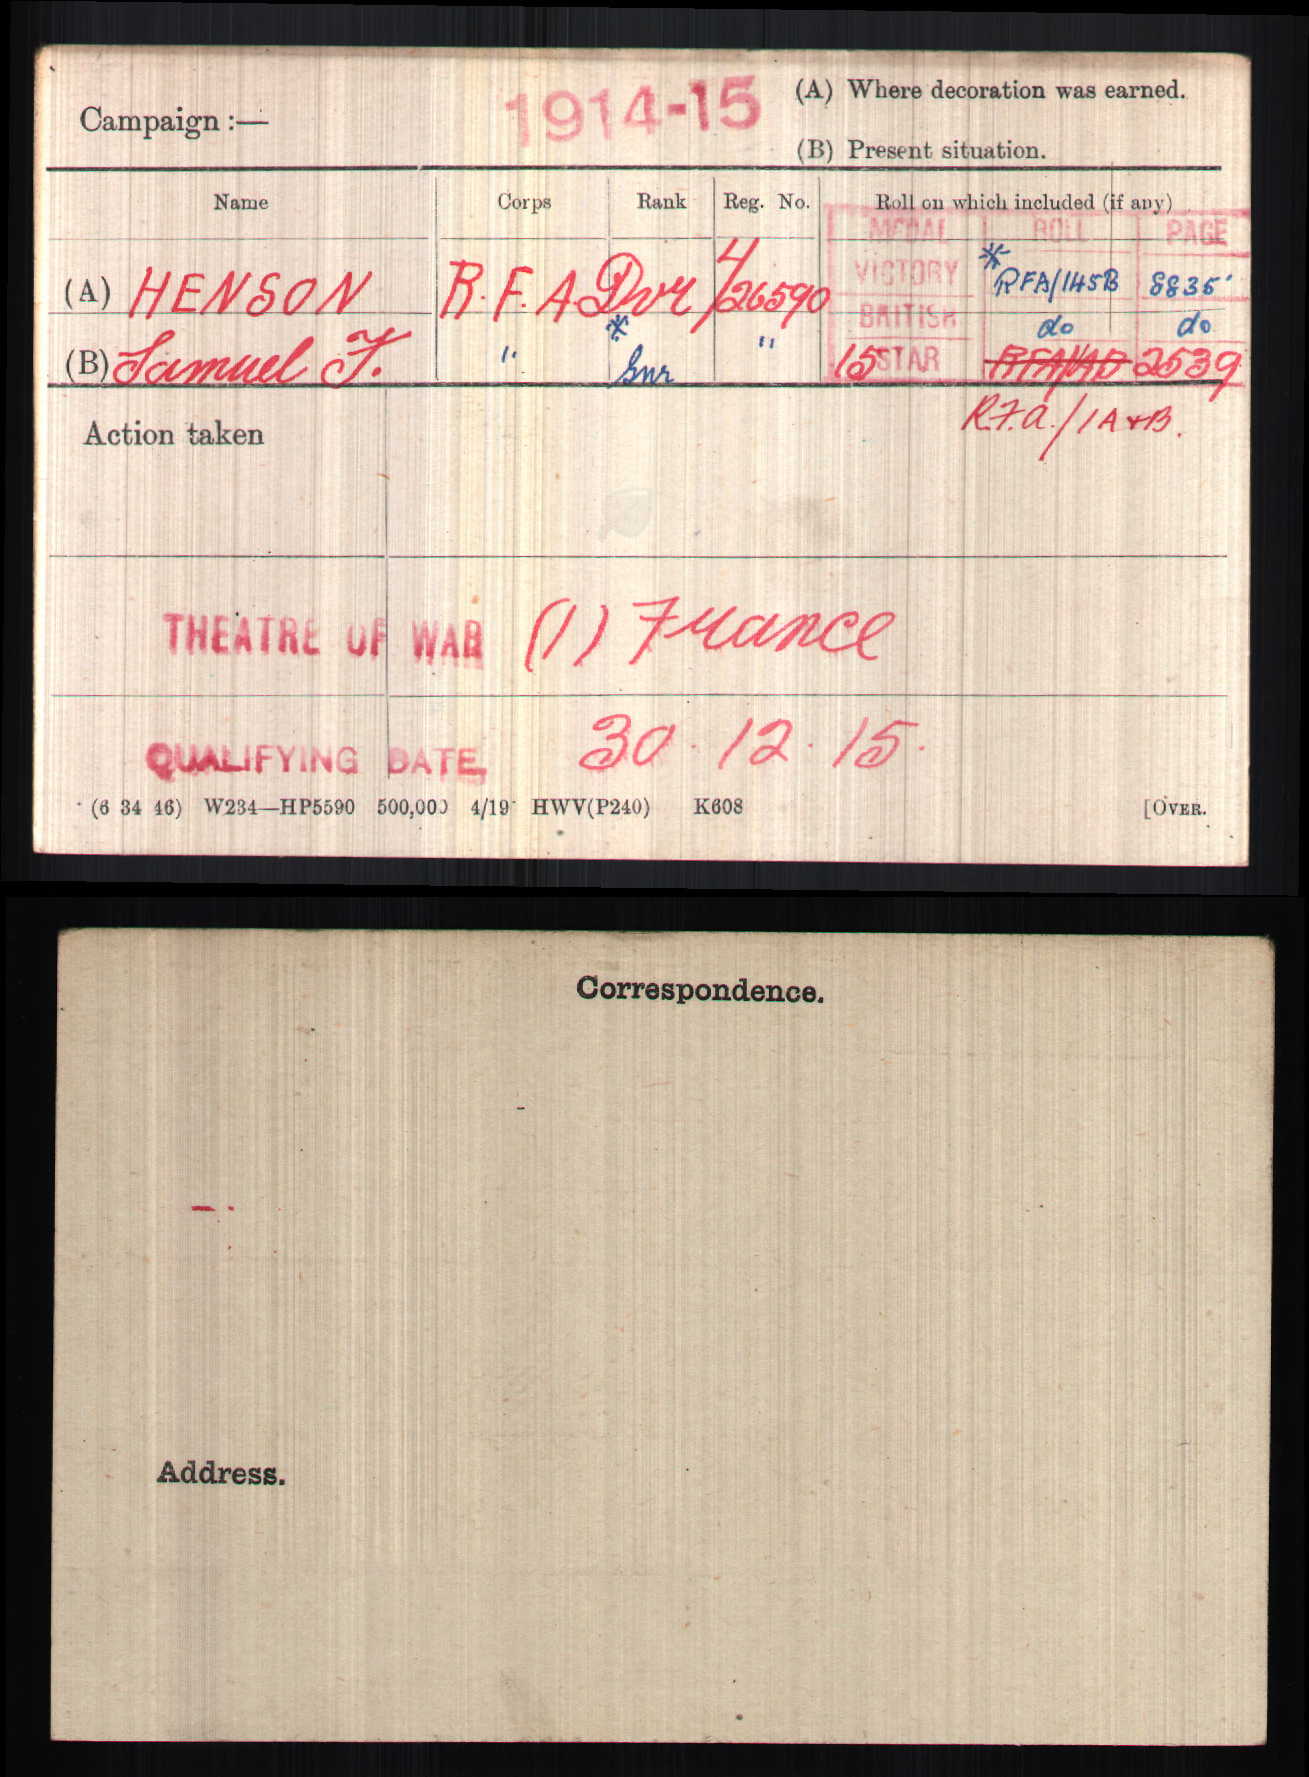 Campaign :— 1914-15 (A) Where decoration was earned.
(B) Present situation.
Name Corps Rank Reg. No. Roll on which included (if any)
MEDAL ROLL PAGE
(A) HENSON R.F.A Dvr 4/26590 VICTORY * RFA/145B 8835
BRITISH do do
(B) Samuel F. " * Gnr " 15 STAR 2539
R.F.A./1A+B.
Action taken
THEATRE OF WAR (1) France
QUALIFYING DATE 30.12.15.
(6 34 46) W234—HP5590 500,000 4/19 HWV(P240) K608 [OVER.
Correspondence.
Address.